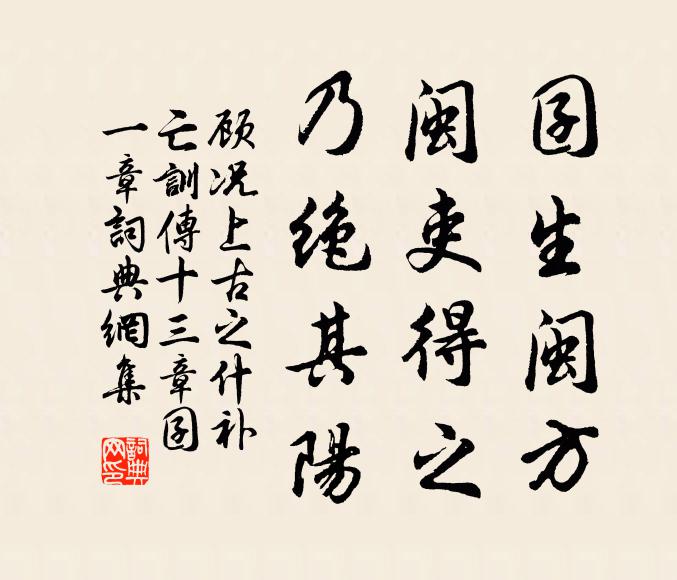 囝生閩方
閩吏得之
乃绝其陽
顾况上古之什补
亡訓傳十三章囝
一章詞典網集
詞典网印